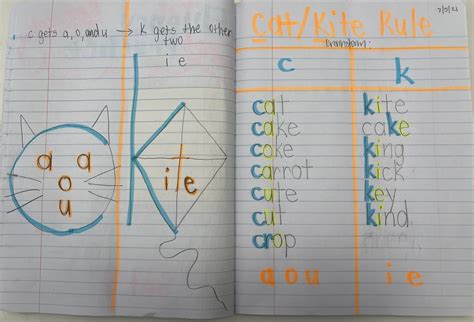 c gets a, o, and u → k gets the other
two
i e
a a
o
u
K ite
Cat/Kite Rule
brainstorm:
c k
cat kite
cake cake
coke king
carrot kick
cute key
cut kind
crop
a o u i e